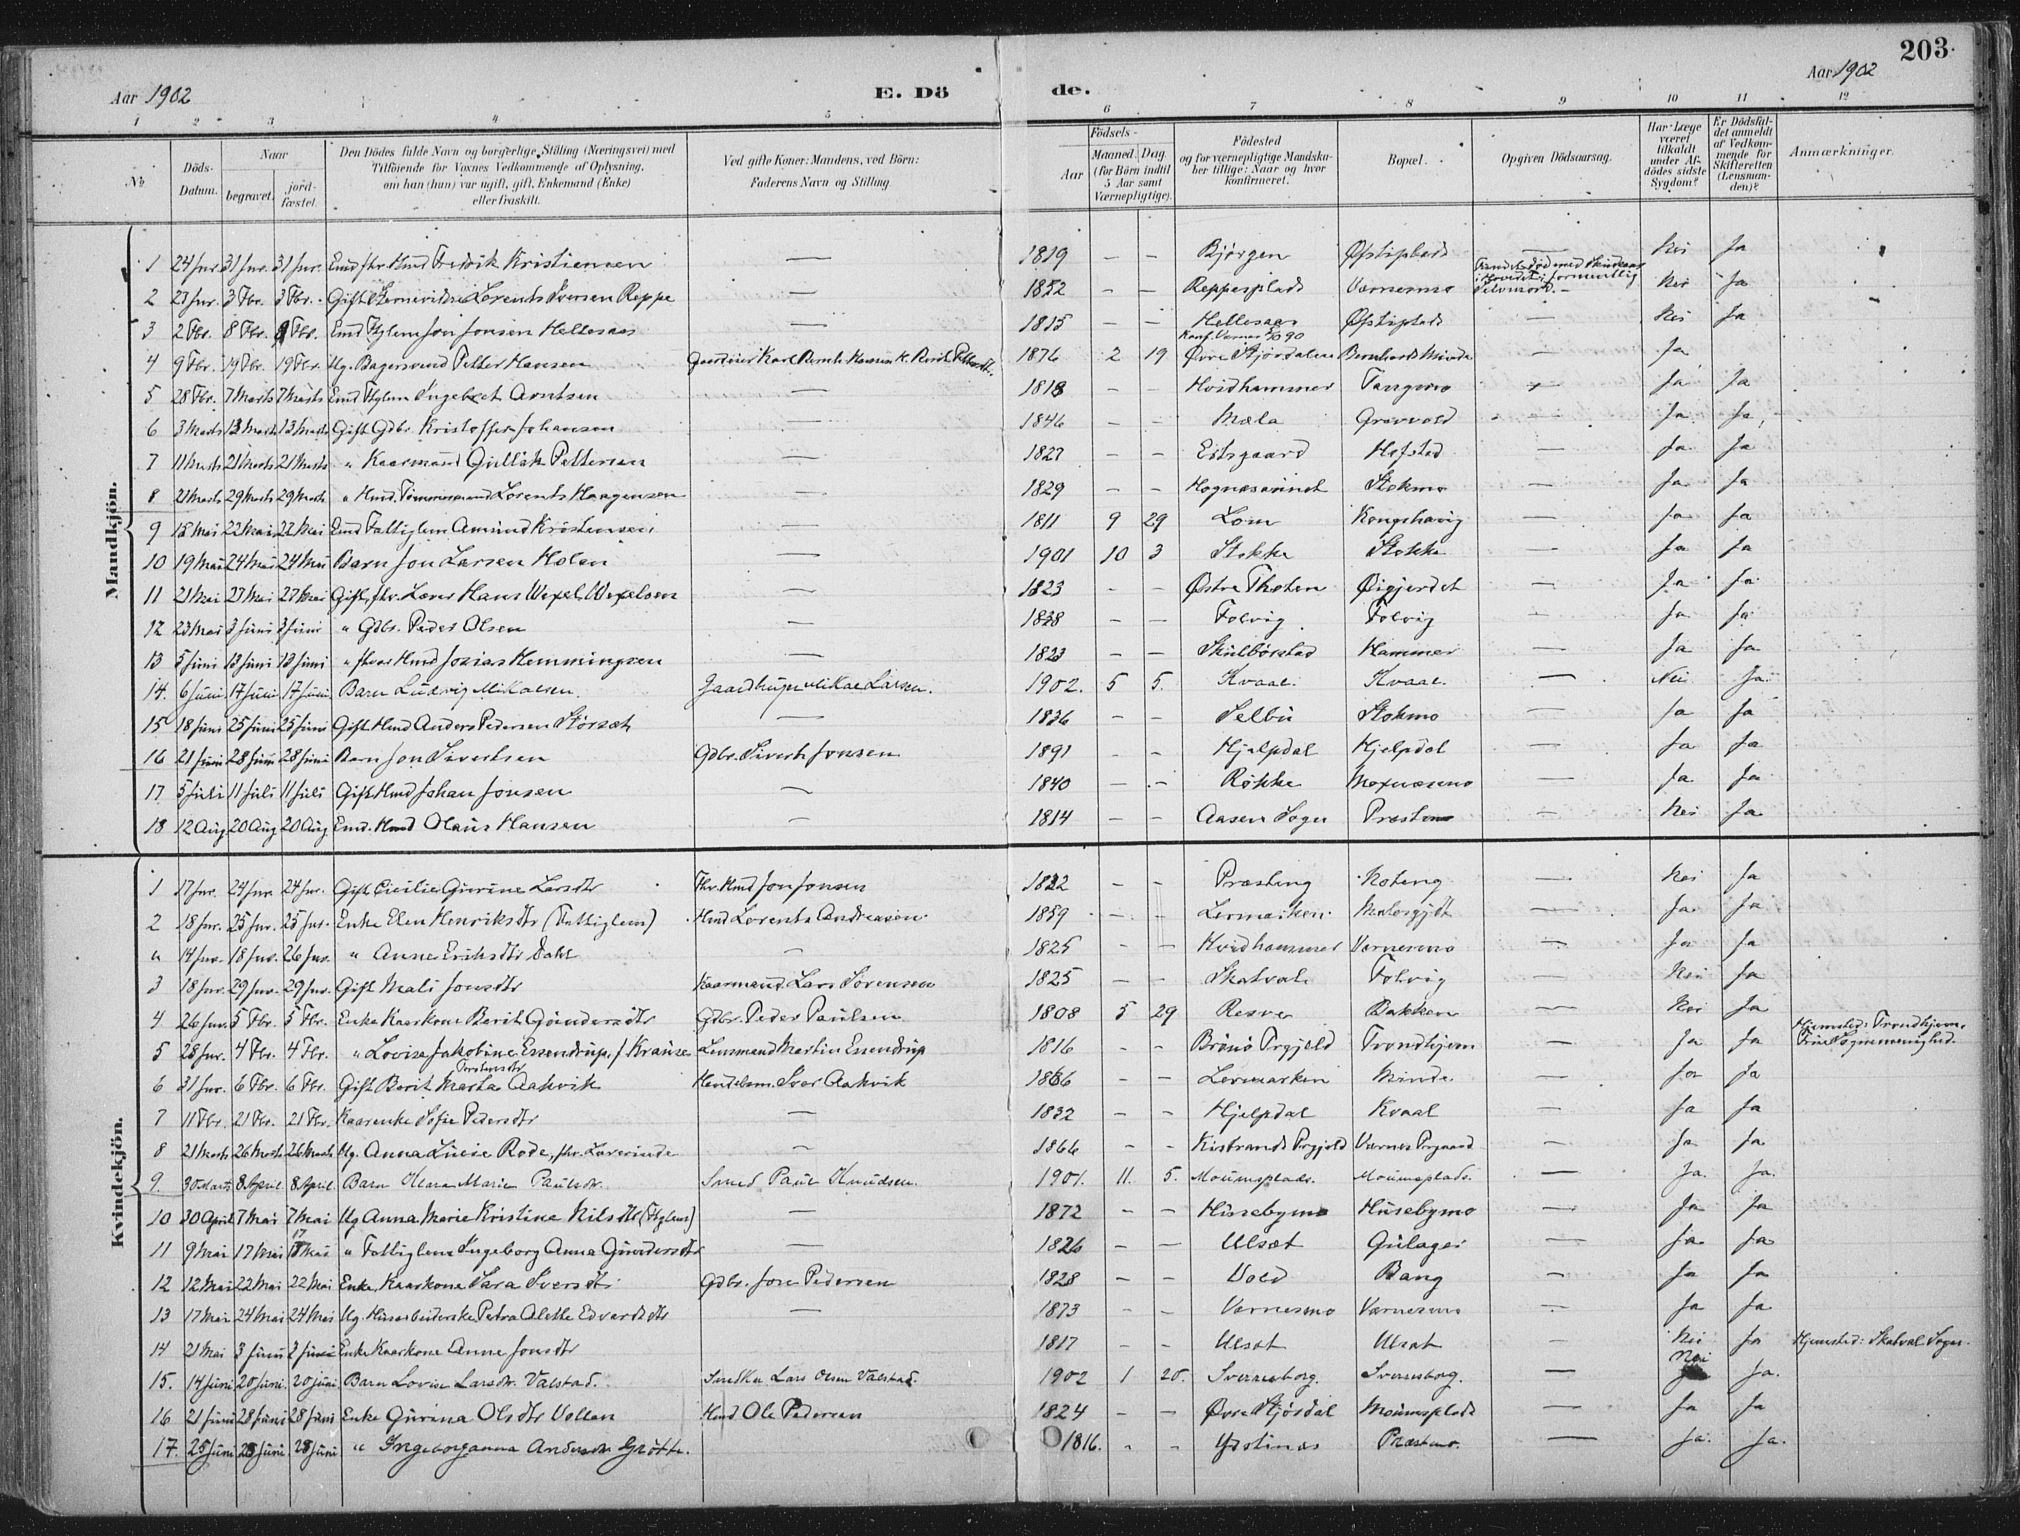 203.
Aar 1902 E. Dö de. Aar 1902
1 2 3 4 5 6 7 8 9 10 11 12
No
Döds-Datum.
Naar
begravet.
jordfæstet.
Den Dödes fulde Navn og borgerlige Stilling (Næringsvei) med
Tilföiende for Voxnes Vedkommende af Oplysning,
om han (hun) var ugift, gift, Enkemand (Enke)
eller fraskilt.
Ved gifte Koner: Mandens, ved Börn:
Faderens Navn og Stilling.
Födsels-
Aar
Maaned. Dag.
(for Börn indtil
5 Aar samt
Værnepligtige).
Födested
og for værnepligtige Mandskaber tillige: Naar og hvor
konfirmeret.
Bopæl.
Opgiven Dödsaarsag.
Har Læge
været
tilkaldt
under Afdödes sidste
Sygdom?
Er Dödsfaldet anmeldt
af Vedkommende for
Skifteretten
(Lensmanden)?
Anmærkninger.
Mandkjön.
1 24 Jnr. 31 Jnr. 31 Jnr. Emd fhv. Hmd Fredrik Kristiensen — 1819 — — Bjørgen Østiplads — Nei Ja
2 27 Jnr. 3 Fbr. 3 Fbr. Gift Lorents Iversen Reppe — 1852 — — Reppesplads Værnesmo Selvmord. — Nei Ja
3 2 Fbr. 8 Fbr. 8 Fbr. Emd Fglem Jon Jonsen Hellesaas — 1815 — — Hellesaas Østiplads — Nei Ja
4 9 Fbr. 19 Fbr. 19 Fbr. Ug. Bagersvend Petter Hansen 1876 2 19 Øvre Stjørdalen Bernhards Minde — Ja
5 28 Fbr. 7 Marts 7 Marts Emd Fglem Ingebret Arntsen — 1818 — — Hvidhammer Tangmo — Ja Ja
6 3 Marts 13 Marts 13 Marts Gift Gdbr. Kristoffer Johansen — 1846 — — Mæla Græsvold — Ja Ja
7 11 Marts 21 Marts 21 Marts " Kaarmand Gullik Pettersen — 1827 — — Eidsgaard Hofstad — Ja Ja
8 21 Marts 29 Marts 29 Marts " Hmd. Tømmermand Lorents Haagensen — 1829 — — Hognesaunet Stokmo — Ja Ja
9 15 Mai 22 Mai 22 Mai Emd Fattiglem Amund Kristensen — 1811 9 29 Lom Kongshavig — Ja Ja
10 19 Mai 24 Mai 24 Mai Barn Jon Larsen Holen — 1901 10 3 Stokke Stokke — Ja Ja
11 21 Mai 27 Mai 27 Mai Gift, fhv. Lærer Hans Wexel Wexelsen — 1823 — — Østre Thoten Øigjerdet — Ja Ja
12 23 Mai 3 Juni 3 Juni " Gdbr. Peder Olsen — 1838 — — Folvig Folvig — Ja Ja
13 5 Juni 13 Juni 13 Juni " fhv. Hmd Josias Hemmingsen — 1823 — — Skulbørstad Hammer — Ja Ja
14. 6 Juni 17 Juni 17 Juni Barn Ludvig Mikalsen. Gaardbruger Mikal Larsen. 1902. 5 5. Kvaal. Kvaal. — Nei Ja.
15 18 Juni 25 Juni 25 Juni Gift Hmd Anders Pedersen Størset — 1836 — — Selbu Stokmo — Ja Ja
16 21 Juni 28 Juni 28 Juni Barn Jon Sivertsen Gdbr. Sivert Jonsen 1891 — — Hjelpdal Hjelpdal — Ja Ja
17 5 Juli 11 Juli 11 Juli Gift Hmd Johan Jonsen — 1840 — — Røkke Moxnæsmo — Ja Ja
18 12 Aug 20 Aug 20 Aug Emd. Hmd Olaus Hansen — 1814 — — Aasen Sogn Præstmo — Nei Ja
Kvindekjön.
1 17 Jnr. 24 Jnr. 24 Jnr. Gift Cicilie Gurine Larsdtr Fhv. Hmd Jon Jonsen 1822 — — Præsteng Koteng — Nei Ja
2 18 Jnr. 25 Jnr. 25 Jnr. Enke Elen Henriksdtr (Fattiglem) Hmd Lorents Andreasen 1859 — — — Ja Ja
a 14 Jnr. 18 Jnr. 26 Jnr. " Anne Eriksdtr Dahl — 1825 — — Hvidhammer Værnesmo — Ja Ja
3 18 Jnr. 29 Jnr. 29 Jnr. Gift Mali Jonsdtr Kaarmand. Lars Sørensen 1825 — — Skatval Folvig — Nei Ja
4 26 Jnr. 5 Fbr. 5 Fbr. Enke Kaarkone Berit Gundersdtr Gdbr. Peder Paulsen 1808 5 29 Resve Bakken — Nei Ja
5 28 Jnr. 4 Fbr. 4 Fbr. " Lovise Jakobine Essendrup, f. Krause Lensmand Martin Essendrup 1816 — — Brönö Prgjeld Trondhjem — Ja Ja Hjemsted: Trondhjem,
6 31 Jnr. 6 Fbr. 6 Fbr. Gift Berit Marta Aakvik Handelsm. Iver Aakvik 1866 — — Levmarken Minde — Ja Ja
7 11 Fbr. 21 Fbr. 21 Fbr. Kaarenke Sofie Pedersdtr — 1832 — — Hjelpdal Kvaal — Ja Ja
8 21 Marts 26 Marts 26 Marts Ug. Anna Lucie Rode, fhv. Lærerinde — 1866 — — Kistrands Prgjeld Værnes Prgaard — Ja Ja
9. 30 Marts 8 April. 8 April. Barn Klara Marie Paulsdr. Smed Paul Knudsen. 1901. 11. 5. Moumsplads. Moumsplads. — Ja. Ja.
10 30 April 7 Mai 7 Mai Ug Anna Marie Kristine Nilsdtr (Fglem) — 1872 — — Husebymo Husebymo — Ja Ja
11 9 Mai 17 Mai 17 Mai " Fattiglem Ingeborg Anna Gundersdtr — 1826 — — Ulsæt Gulager — Ja Ja
12 12 Mai 22 Mai 22 Mai Enke, Kaarkone Sara Iversdtr Gdbr. Jon Pedersen 1828 — — Vold Bang — Ja Ja
13 17 Mai 24 Mai 24 Mai Ug. Husarbeiderske Petra Alette Edvardsdtr — 1873 — — Værnesmo Værnesmo — Ja Ja
14 21 Mai 3 Juni 3 Juni Enke Kaarkone Anne Jonsdtr 1817 — — Ulsæt Ulsæt — Nei Ja Hjemsted: Skatval Sogn.
15. 14 Juni 20 Juni. 20 Juni Barn Lovise Larsdr. Valstad. Lars Olsen Valstad. 1902 1 20. Sverresborg. Sverresborg. — Nei Ja.
16 21 Juni 28 Juni 28 Juni Enke Gurina Olsdtr Vollan Hmd Ole Pedersen 1824 — — Øvre Stjørdal Moumsplads — Ja Ja
17. 25 Juni 28 Juni 28 Juni " Ingeborganna Andersdr Grøtte. 1816. — — Ystinæs Præstmo. — Ja. Ja.